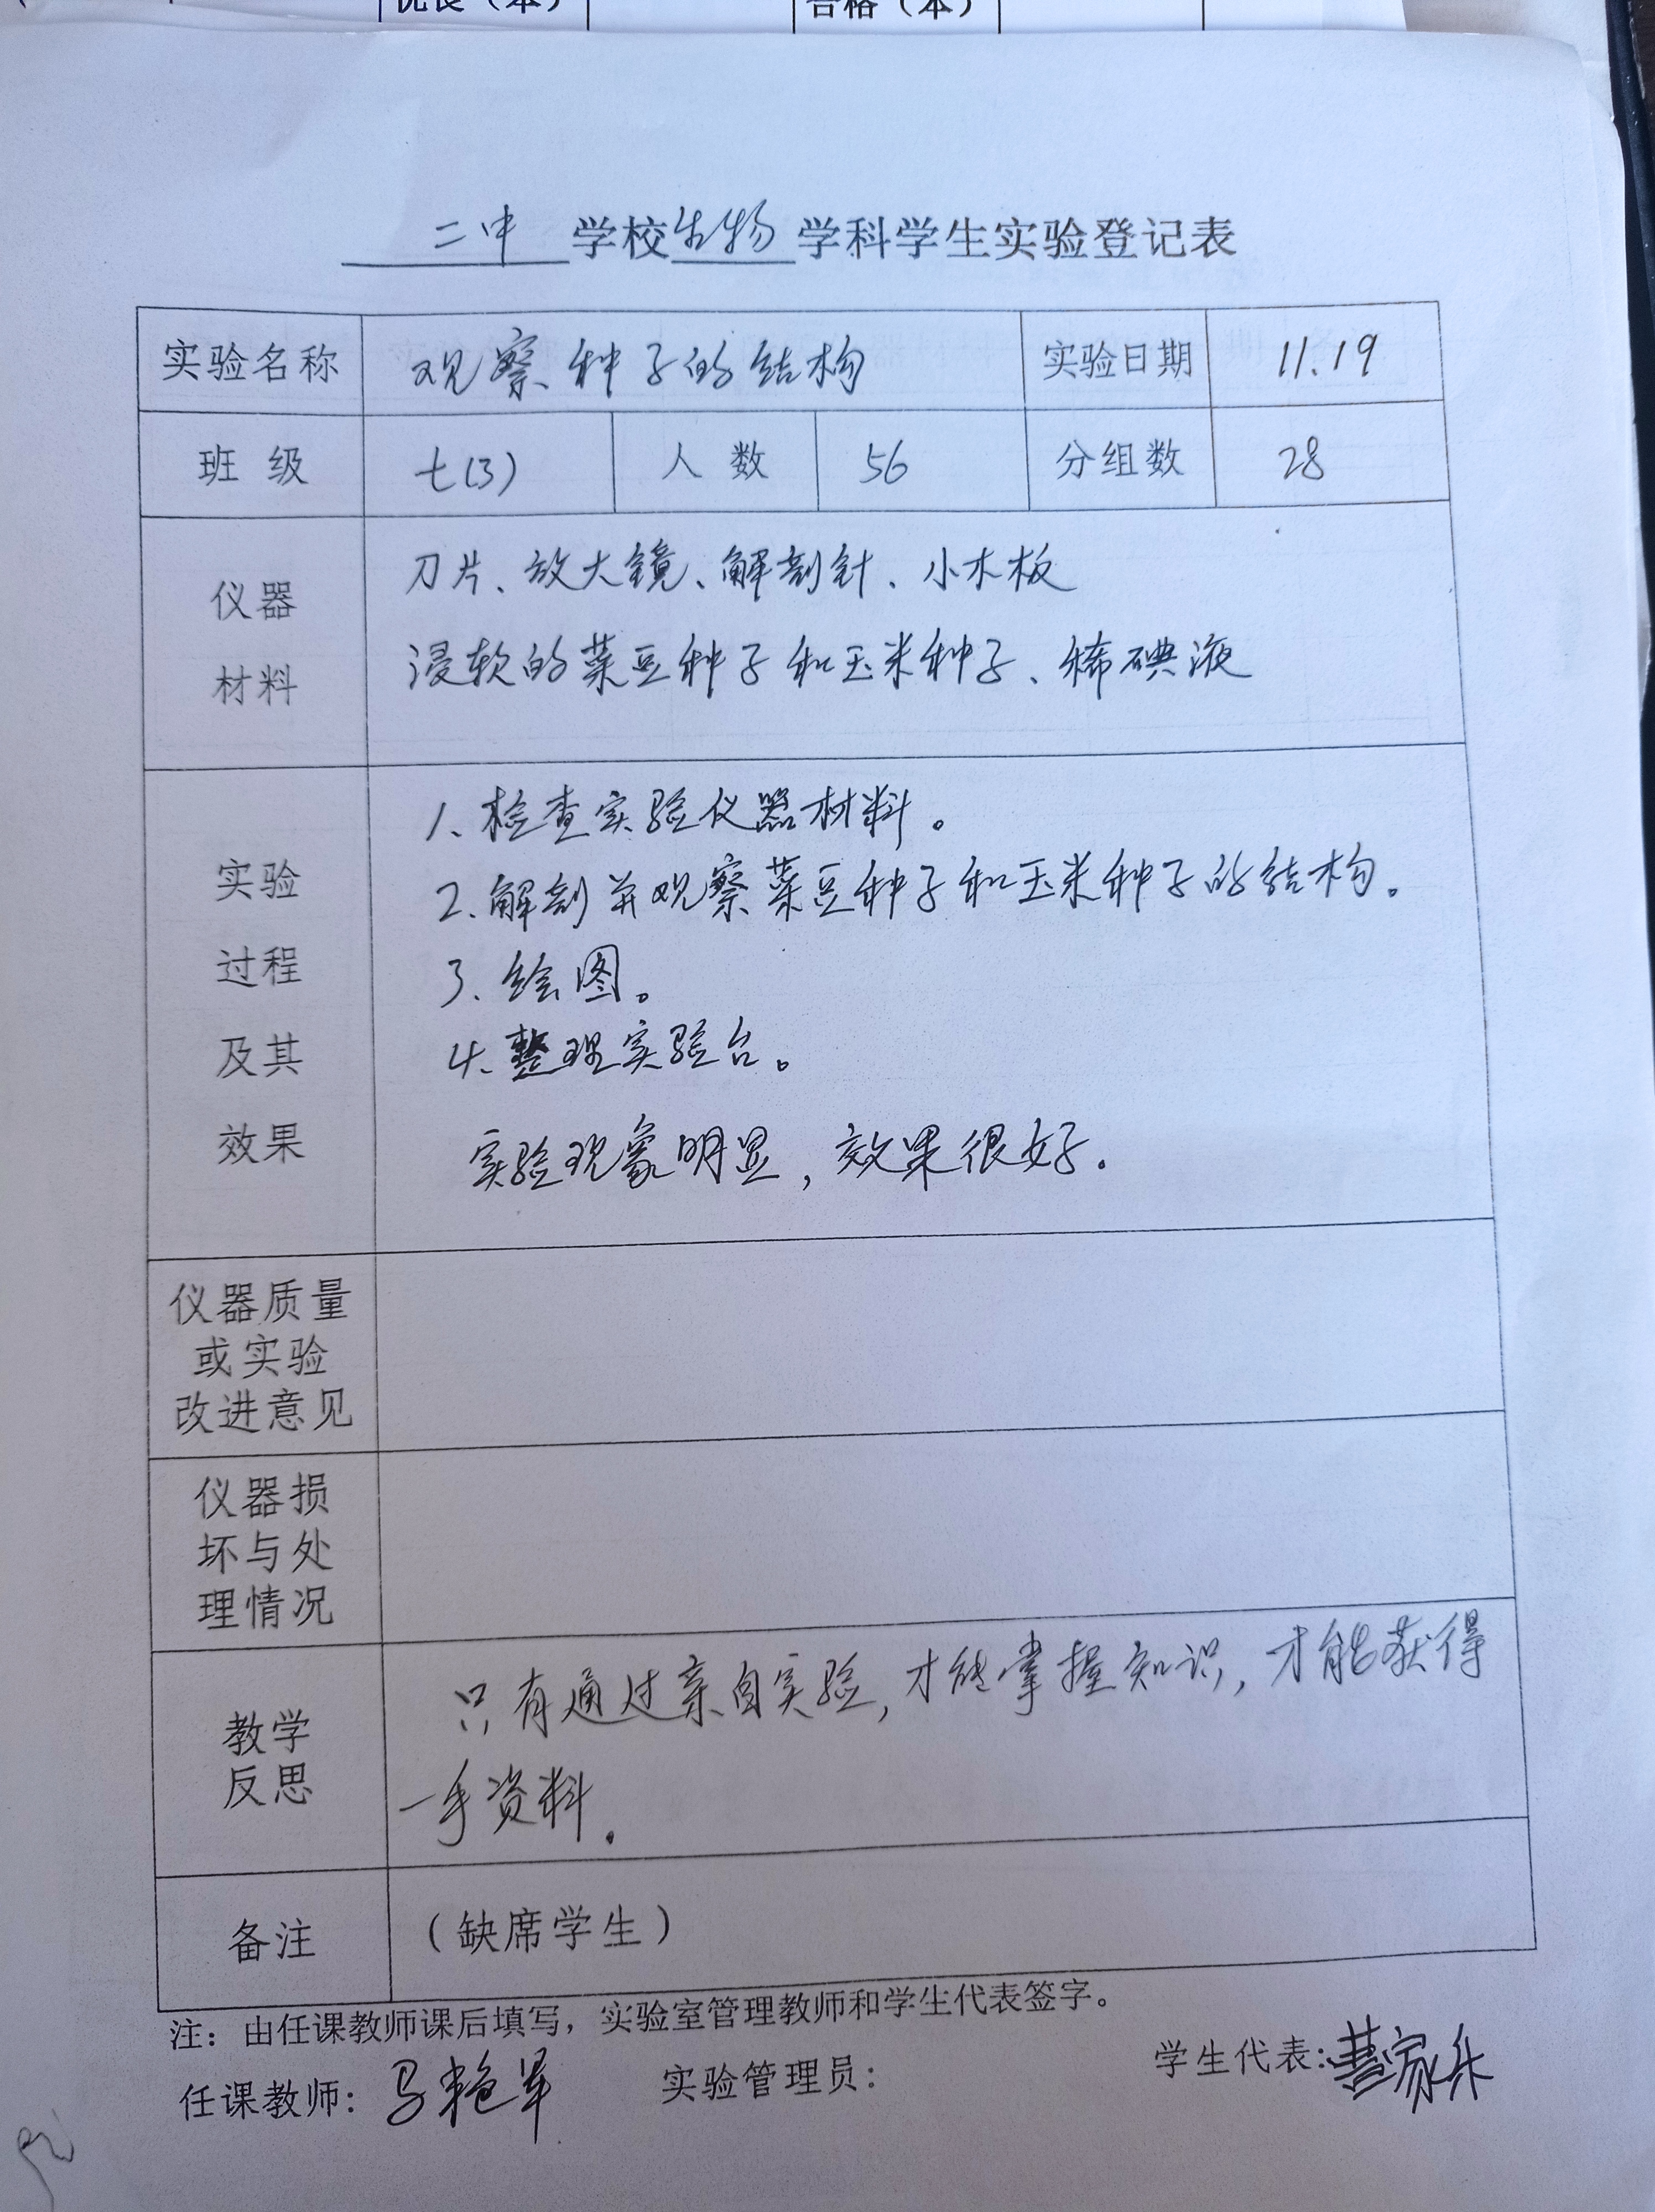 优良（本）	合格（本）
二中学校生物学科学生实验登记表
实验名称	观察种子的结构	实验日期	11.19
班 级	七(3)	人 数	56	分组数	28
仪器
材料
刀片、放大镜、解剖针、小木板
浸软的菜豆种子和玉米种子、稀碘液
实验
过程
及其
效果
1、检查实验仪器材料。
2、解剖并观察菜豆种子和玉米种子的结构。
3、绘图。
4、整理实验台。
实验现象明显，效果很好。
仪器质量
或实验
改进意见
仪器损
坏与处
理情况
教学
反思
只有通过亲自实验，才能掌握知识，才能获得
一手资料。
备注	（缺席学生）
注：由任课教师课后填写，实验室管理教师和学生代表签字。
任课教师：马艳军	实验管理员：	学生代表：